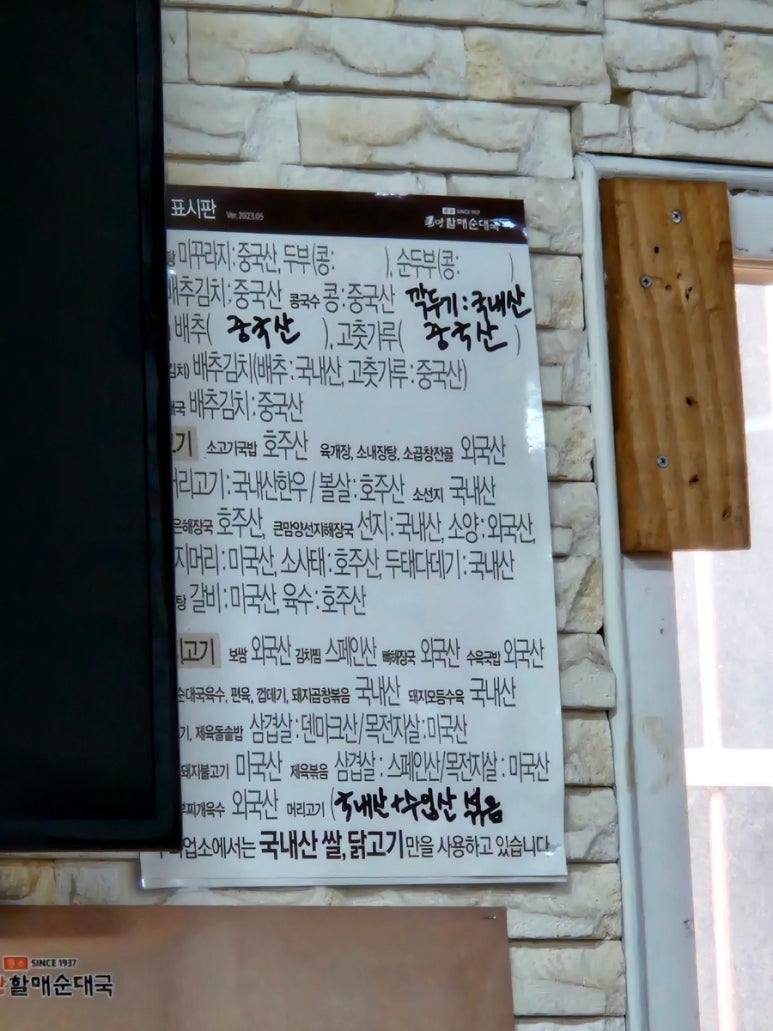 표시판 Ver. 2023.05 SINCE 1937 할매순대국
탕 미꾸라지 : 중국산, 두부(콩: ), 순두부(콩: )
배추김치 : 중국산 콩국수 콩 : 중국산 깍두기 : 국내산
배추( 중국산 ), 고춧가루( 중국산 )
김치) 배추김치(배추 : 국내산, 고춧가루 : 중국산)
배추김치 : 중국산
기 소고기국밥 호주산 육개장, 소내장탕, 소곱창전골 외국산
머리고기 : 국내산한우 / 볼살 : 호주산 소선지 국내산
은해장국 호주산, 큰맘양선지해장국 선지 : 국내산, 소양 : 외국산,
지머리 : 미국산, 소사태 : 호주산, 두태다데기 : 국내산
탕 갈비 : 미국산, 육수 : 호주산
고기 보쌈 외국산 김치찜 스페인산 뼈해장국 외국산 수육국밥 외국산
순대국육수, 편육, 껍데기, 돼지곱창볶음 국내산 돼지모듬수육 국내산
기, 제육돌솥밥 삼겹살 : 덴마크산 / 목전지살 : 미국산
돼지불고기 미국산 제육볶음 삼겹살 : 스페인산/목전지살 : 미국산
찌개육수 외국산 머리고기 (국내산+수입산 볶음
업소에서는 국내산 쌀, 닭고기 만을 사용하고 있습니다
SINCE 1937
할매순대국